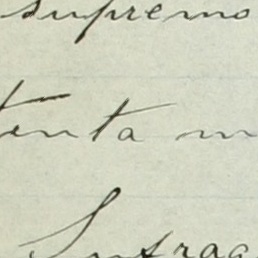 supremo
tenta m
Sufrag